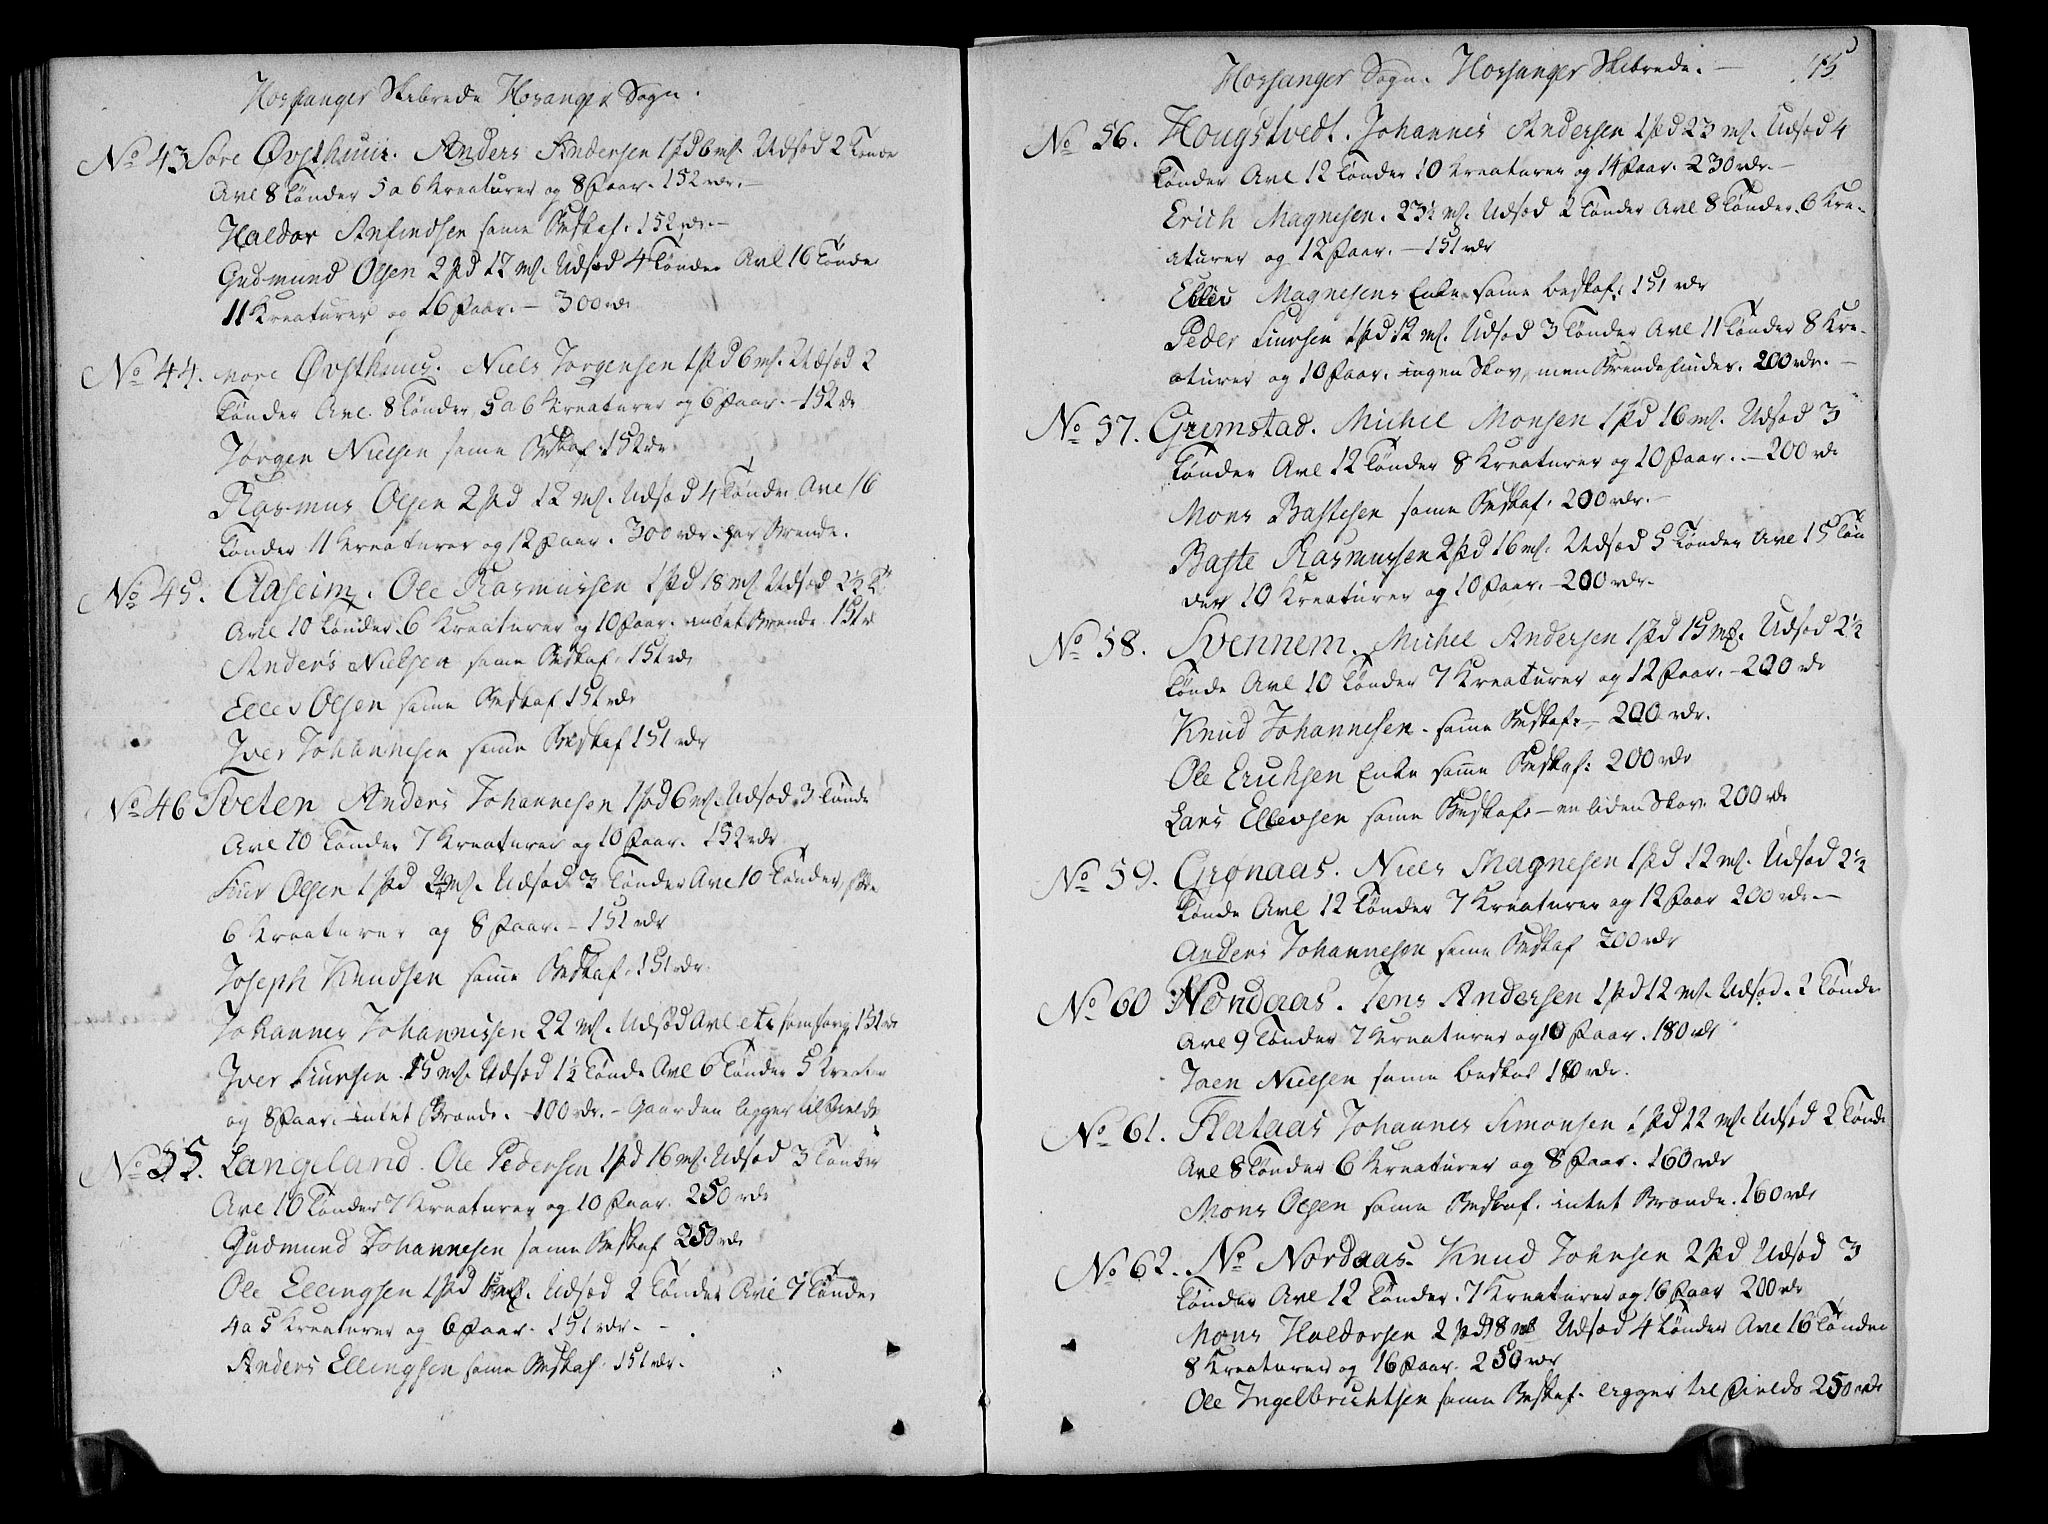 Hossanger Skibrede Hosanger Sogn.
No 43 Søre Øvsthuus. Anders Andersen 1 pd 6 mk. Udsæd 2 Tønde
Avl 8 Tønder 5 a 6 Kreaturer og 8 Faar. 152 rdr.
Haldor Anfindsen same Beskaf. 152 rdr.
Gudmund Olsen 2 pd 12 mk. Udsæd 4 Tønder Avl 16 Tønder
11 Kreaturer og 16 Faar. 300 rdr
No 44. More Øvsthuus. Niels Jørgensen 1 pd 6 mk. Udsæd 2
Tønder Avl 8 Tønder, 5 a 6 Kreaturer og 6 Faar. 152 rdr
Jørgen Nielsen same Beskaf. 152 rdr
Rasmus Olsen 2 pd 12 mk. Udsæd 4 Tønder Avl 16
Tønder 11 Kreaturer og 12 Faar. 300 rdr. har Brende.
No 45. Aaseim. Ole Rasmussen 1 pd 18 mk Udsæd 2½ T
Avl 10 Tønder. 6 Kreaturer og 10 Faar. intet Brende 151 r
Anders Nielsen same Beskaf. 151 rdr
Ellev Olsen same Beskaf 151 rdr
Iver Johannesen same Beskaf 151 rdr
No 46 Tveten Anders Johannesen 1 pd 6 mk. Udsæd 3 Tønde
Avl 10 Tønder 7 Kreaturer og 10 Faar. 152 rdr
Siur Olsen 1 pd mk. Udsæd 3 Tønder Avl 10 Tønder,
6 Kreaturer og 8 Faar. 151 rdr
Joseph Knudsen same Beskaf. 151 rdr.
Johannes Johannissen 22 mk. Udsæd Avl etc som forrig 151 rdr
Iver Siursen 15 mk. Udsæd 1½ Tønde Avl 6 Tønder 5 Kreatur
og 8 Faar. intet Brende. 100 rdr. Gaarden ligger til Fields
No 55. Langeland. Ole Pedersen 1 pd 16 mk. Udsæd 3 Tønder
Avl 10 Tønder 7 Kreaturer og 10 Faar. 250 rdr
Gudmund Johannesen same Beskaf 250 rdr
Ole Ellingsen 1 pd mk. Udsæd 2 Tønder Avl 7 Tønder
4 a 5 Kreaturer og 6 Faar. 151 rdr.
Anders Ellingsen same Beskaf. 151 rdr.
Hossanger Sogn. Hossanger Skibrede.
No 56. Hougstvedt. Johannes Andersen 1 pd 23 mk. Udsæd 4
Tønder Avl 12 Tønder 10 Kreaturer og 14 Faar. 230 rdr.
Erich Magnesen. 23½ mk. Udsæd 2 Tønder Avl 8 Tønder. 6 Kre-
aturer og 12 Faar. 151 rdr
Ellev Magnesens Enke same beskaf: 151 rdr
Peder Siursen 1 pd 12 mk. Udsæd 3 Tønder Avl 11 Tønder 8 Kre-
aturer og 10 Faar. ingen Skov, men Brende finder. 200 rdr.
No 57. Grimstad. Michel Monsen 1 pd 16 mk. Udsæd 3
Tønder Avl 12 Tønder 8 Kreaturer og 10 Faar. 200 rdr
Mons Bastesen same Beskaf. 200 rdr.
Baste Rasmussen 2 pd 16 mk. Udsæd 5 Tønder Avl 15 Tøn
der 10 Kreaturer og 10 Faar. 200 rdr.
No 58. Svennem. Michel Andersen 1 pd 15 mk. Udsæd 2½
Tønde Avl 10 Tønder 7 Kreaturer og 12 Faar. 200 rdr
Knud Johannesen. same Beskaf: 200 rdr.
Ole Erichsen Enke same Beskaf: 200 rdr
Lars Ellevsen same Beskafe en liden Skov. 200 rdr
No 59. Grønaas. Niels Magnesen 1 pd 12 mk. Udsæd 2½
Tønde Avl 12 Tønder 7 Kreaturer og 12 Faar 200 rdr.
Anders Johannesen same Beskaf 200 rdr
No 60 Nondaas. Jens Andersen 1 pd 12 mk. Udsæd. 2 Tønde
Avl 9 Tønder 7 Kreaturer og 10 Faar. 180 rdr
Joen Nielsen same beskaf 180 rdr.
No 61. Flataas Johannes Simonsen 1 pd 12 mk. Udsæd 2 Tønde
Avl 8 Tønder 6 Kreaturer og 8 Faar. 160 rdr
Mons Olsen same Beskaf. intet Brende. 160 rdr
No 62. No Nordaas. Knud Johnsen 2 pd Udsæd 3
Tønder Avl 12 Tønder. 7 Kreaturer og 16 Faar 200 rdr
Mons Haldorsen 2 pd 18 mk Udsæd 4 Tønder Avl 16 Tønder
8 Kreaturer og 16 Faar. 250 rdr
Ole Ingelbrichtsen same Beskaf. ligger til Fields 250 rdr